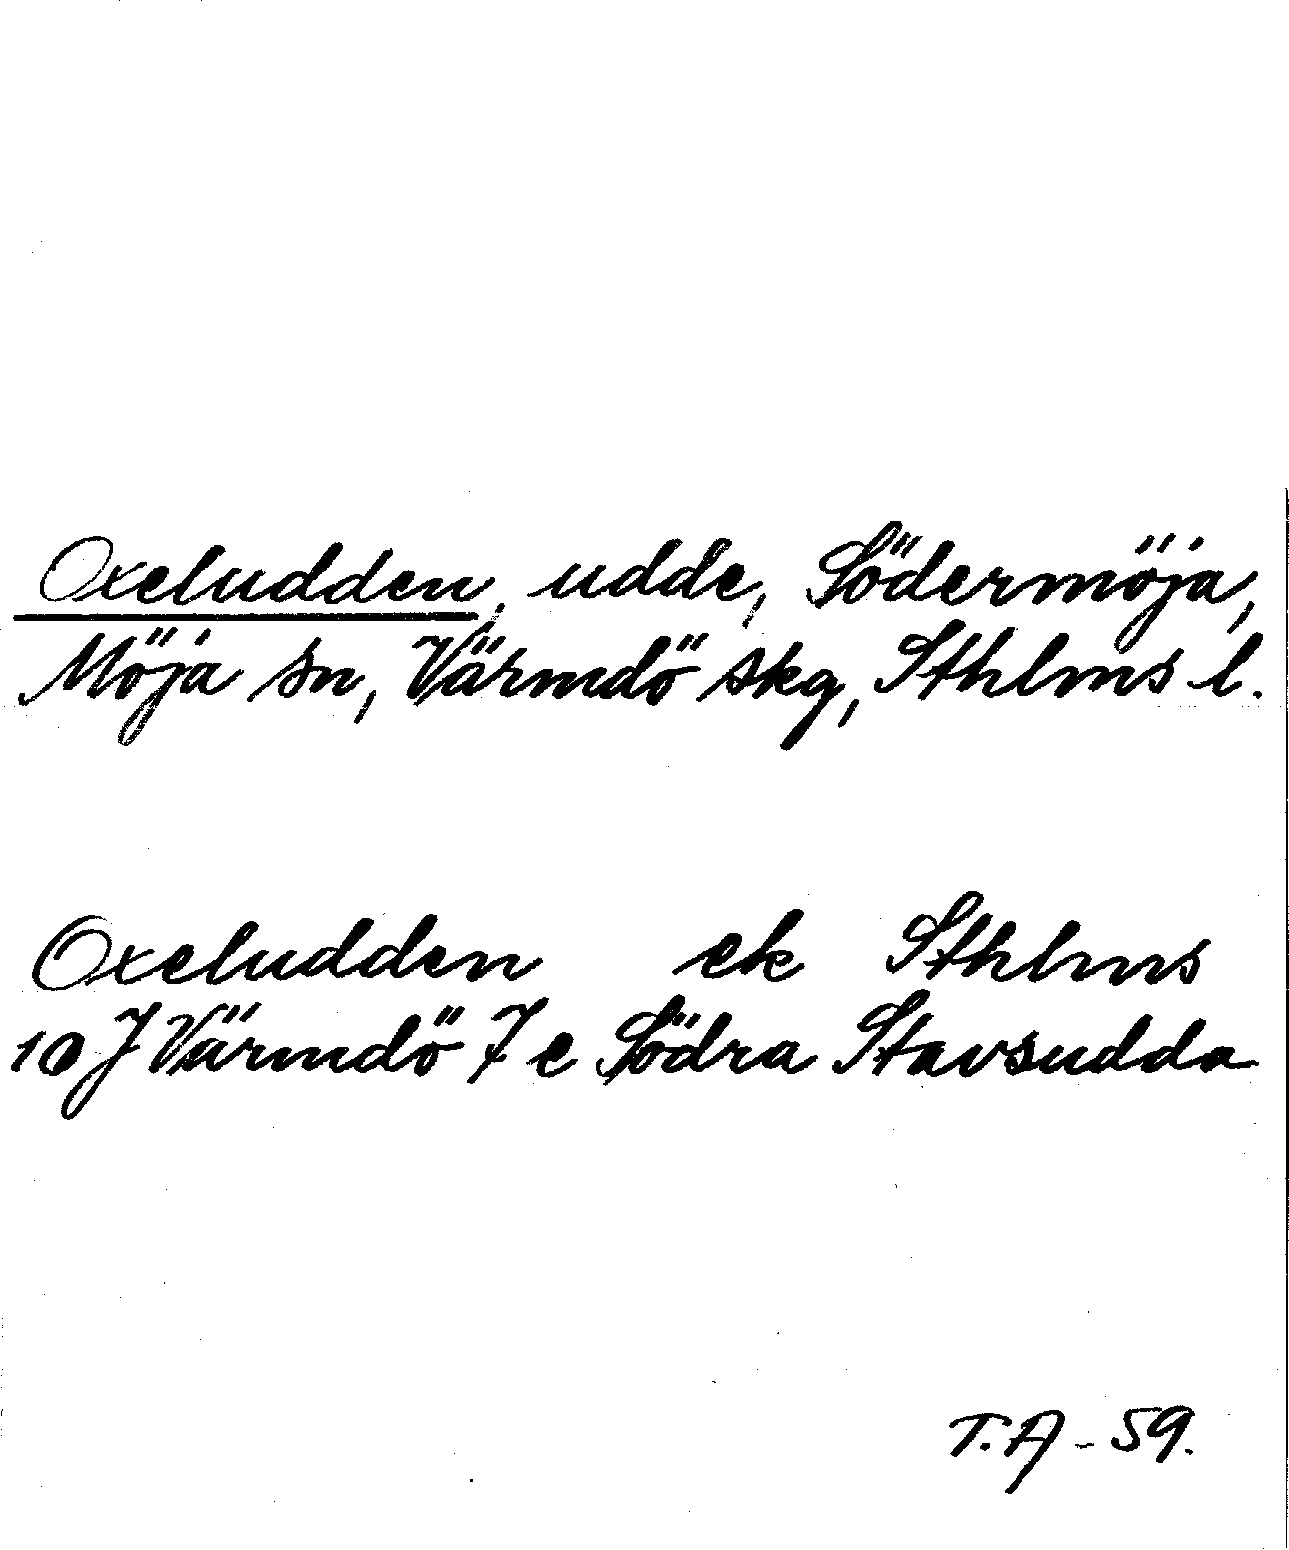 Oxeludden, udde, Södermöja,
Möja sn, Värmdö skg, Sthlms l.
Oxeludden ek Sthlms
10 J Värmdö 7 e Södra Stavsudda
T.A - 59.